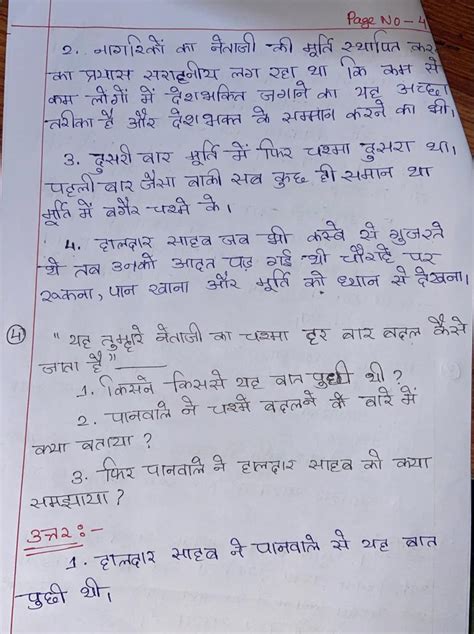 Page No - 4
2. नागरिकों का नेताजी की मूर्ति स्थापित कर
का प्रयास सराहनीय लग रहा था कि कम से
कम लोगों में देशभक्ति जगाने का यह अच्छा
तरीका है और देशभक्त के सम्मान करने का भी।
3. दुसरी बार मूर्ति में फिर चश्मा दुसरा था।
पहली बार जैसा बाकी सब कुछ ही समान था
मूर्ति में बगैर चश्मे के।
4. हालदार साहब जब भी कस्बे से गुजरते
थे तब उनको आदत पड़ गई थी चौराहे पर
रूकना, पान खाना और मूर्ति को ध्यान से देखना।
4 " यह तुम्हारे नेताजी का चश्मा हर बार बदल कैसे
जाता है" ——
1. किसने किससे यह बात पुछी थी ?
2. पानवाले ने चश्मे बदलने के बारे में
क्या बताया ?
3. फिर पानवाले ने हालदार साहब को क्या
समझाया ?
उत्तर :-
1. हालदार साहब ने पानवाले से यह बात
पुछी थी।